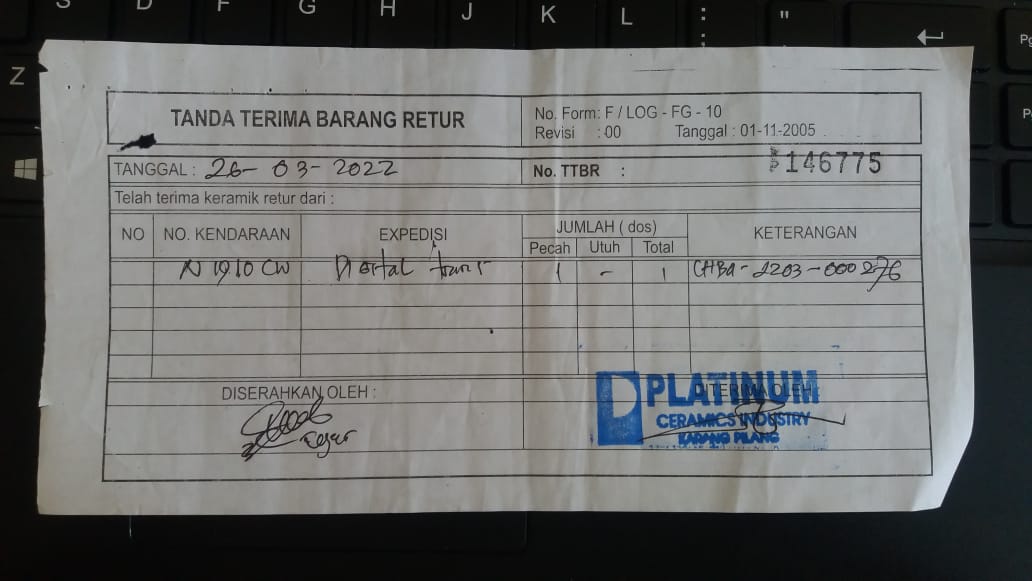 TANDA TERIMA BARANG RETUR
No. Form: F / LOG - FG - 10
Revisi : 00 Tanggal : 01-11-2005
TANGGAL : 26-03-2022
No. TTBR : 146775
Telah terima keramik retur dari :
NO NO. KENDARAAN EXPEDISI JUMLAH ( dos) KETERANGAN
Pecah Utuh Total
N 1910 CW trans 1 - 1 -2203-000276
DISERAHKAN OLEH : DITERIMA OLEH
PLATINUM
CERAMICS INDUSTRY
KARANG PILANG